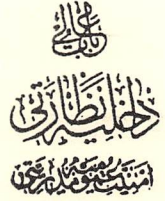 باب عالی
داخلیه نظارتی
امنیت عمومیه مدیریتی